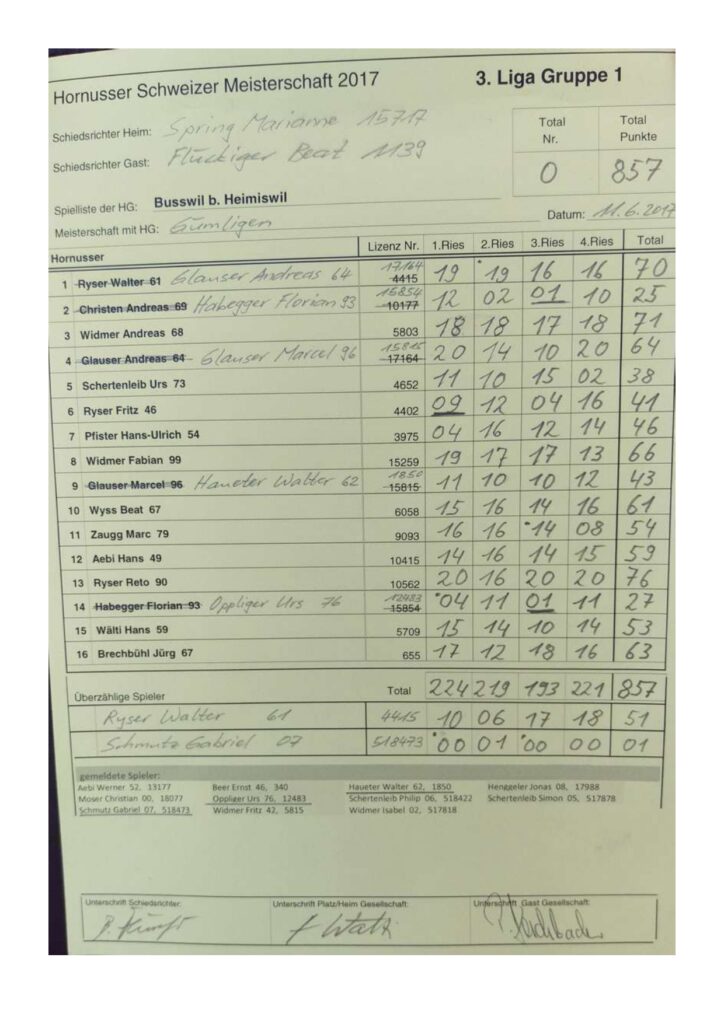 Hornusser Schweizer Meisterschaft 2017 3. Liga Gruppe 1
Schiedsrichter Heim: Spring Marianne 15717
Schiedsrichter Gast: Flückiger Beat 1139
Total Nr. Total Punkte
0 857
Spielliste der HG: Busswil b. Heimiswil
Meisterschaft mit HG: Gümligen Datum: 11.6.2017
Hornusser Lizenz Nr. 1.Ries 2.Ries 3.Ries 4.Ries Total
1 Ryser Walter 61 Glauser Andreas 64 17164 4415 19 19 16 16 70
2 Christen Andreas 69 Habegger Florian 93 15854 10177 12 02 01 10 25
3 Widmer Andreas 68 5803 18 18 17 18 71
4 Glauser Andreas 64 Glauser Marcel 96 15815 17164 20 14 10 20 64
5 Schertenleib Urs 73 4652 11 10 15 02 38
6 Ryser Fritz 46 4402 09 12 04 16 41
7 Pfister Hans-Ulrich 54 3975 04 16 12 14 46
8 Widmer Fabian 99 15259 19 17 17 13 66
9 Glauser Marcel 96 Haueter Walter 62 1850 15815 11 10 10 12 43
10 Wyss Beat 67 6058 15 16 14 16 61
11 Zaugg Marc 79 9093 16 16 14 08 54
12 Aebi Hans 49 10415 14 16 14 15 59
13 Ryser Reto 90 10562 20 16 20 20 76
14 Habegger Florian 93 Oppliger Urs 76 12483 15854 04 11 01 11 27
15 Wälti Hans 59 5709 15 14 10 14 53
16 Brechbühl Jürg 67 655 17 12 18 16 63
Überzählige Spieler Total 224 219 193 221 857
Ryser Walter 61 4415 10 06 17 18 51
Schmutz Gabriel 07 518473 00 01 00 00 01
gemeldete Spieler:
Aebi Werner 52, 13177 Beer Ernst 46, 340 Haueter Walter 62, 1850 Henggeler Jonas 08, 17988
Moser Christian 00, 18077 Oppliger Urs 76, 12483 Schertenleib Philip 06, 518422 Schertenleib Simon 05, 517878
Schmutz Gabriel 07, 518473 Widmer Fritz 42, 5815 Widmer Isabel 02, 517818
Unterschrift Schiedsrichter: Unterschrift Platz/Heim Gesellschaft: Unterschrift Gast Gesellschaft: